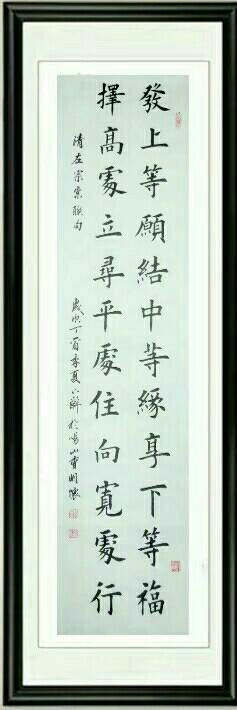 發上等願結中等緣享下等福
擇高處立尋平處住向寬處行
清左宗棠聯句
歲次丁酉季夏